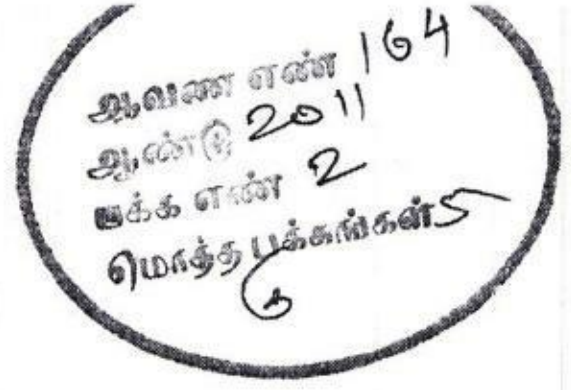 ஆவண எண் 164
ஆண்டு 2011
பக்க எண் 2
மொத்த பக்கங்கள் 5